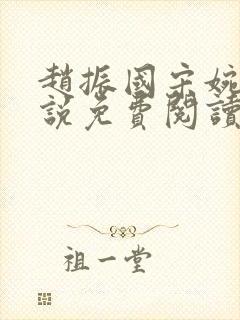 趙振國宋婉
說免費閱讀
祖一堂